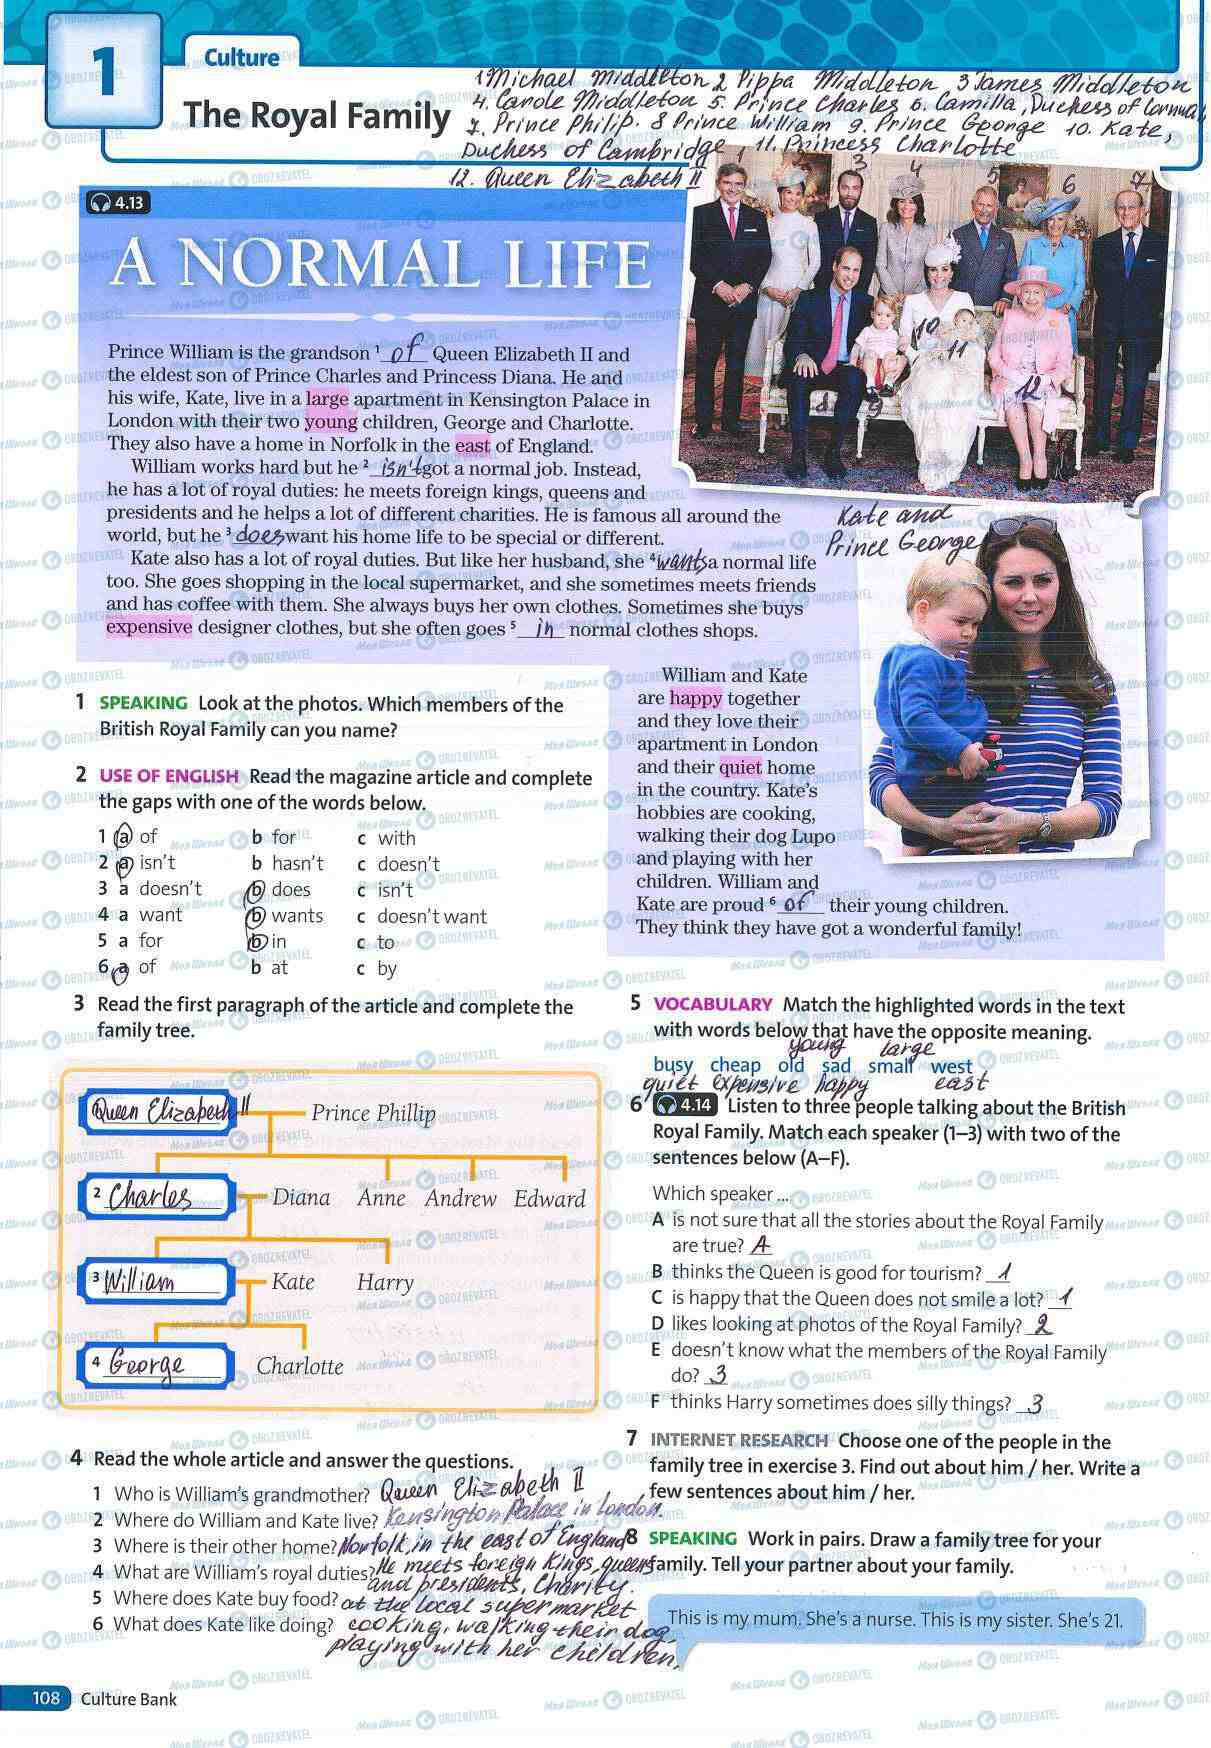 1
Culture
The Royal Family
1 Michael Middleton 2 Pippa Middleton 3 James Middleton
4. Carole Middleton 5. Prince Charles 6. Camilla, Duchess of Cornwa
7. Prince Philip. 8 Prince William 9. Prince George 10. Kate,
Duchess of Cambridge 11. Princess Charlotte
12. Queen Elizabeth II
1 3 4 5 6 7
10 11
8 9 12
4.13
A NORMAL LIFE
Prince William is the grandson 1 of Queen Elizabeth II and
the eldest son of Prince Charles and Princess Diana. He and
his wife, Kate, live in a large apartment in Kensington Palace in
London with their two young children, George and Charlotte.
They also have a home in Norfolk in the east of England.
William works hard but he 2 isn't got a normal job. Instead,
he has a lot of royal duties: he meets foreign kings, queens and
presidents and he helps a lot of different charities. He is famous all around the
world, but he 3 does want his home life to be special or different.
Kate also has a lot of royal duties. But like her husband, she 4 wants a normal life
too. She goes shopping in the local supermarket, and she sometimes meets friends
and has coffee with them. She always buys her own clothes. Sometimes she buys
expensive designer clothes, but she often goes 5 in normal clothes shops.
Kate and
Prince George
William and Kate
are happy together
and they love their
apartment in London
and their quiet home
in the country. Kate's
hobbies are cooking,
walking their dog Lupo
and playing with her
children. William and
Kate are proud 6 of their young children.
They think they have got a wonderful family!
1 SPEAKING Look at the photos. Which members of the
British Royal Family can you name?
2 USE OF ENGLISH Read the magazine article and complete
the gaps with one of the words below.
1 a of b for c with
2 a isn't b hasn't c doesn't
3 a doesn't b does c isn't
4 a want b wants c doesn't want
5 a for b in c to
6 a of b at c by
3 Read the first paragraph of the article and complete the
family tree.
Queen Elizabeth II Prince Phillip
2 Charles Diana Anne Andrew Edward
3 William Kate Harry
4 George Charlotte
4 Read the whole article and answer the questions.
1 Who is William's grandmother? Queen Elizabeth II
2 Where do William and Kate live? Kensington Palace in London.
3 Where is their other home? Norfolk, in the east of England
4 What are William's royal duties? He meets foreign kings, queens
and presidents, Charity.
5 Where does Kate buy food? at the local supermarket
6 What does Kate like doing? cooking, walking their dog,
playing with her children.
5 VOCABULARY Match the highlighted words in the text
with words below that have the opposite meaning.
young large
busy cheap old sad small west
quiet expensive happy east
6 4.14 Listen to three people talking about the British
Royal Family. Match each speaker (1–3) with two of the
sentences below (A–F).
Which speaker ...
A is not sure that all the stories about the Royal Family
are true? A
B thinks the Queen is good for tourism? 1
C is happy that the Queen does not smile a lot? 1
D likes looking at photos of the Royal Family? 2
E doesn't know what the members of the Royal Family
do? 3
F thinks Harry sometimes does silly things? 3
7 INTERNET RESEARCH Choose one of the people in the
family tree in exercise 3. Find out about him / her. Write a
few sentences about him / her.
8 SPEAKING Work in pairs. Draw a family tree for your
family. Tell your partner about your family.
This is my mum. She's a nurse. This is my sister. She's 21.
108 Culture Bank
Моя Школа OBOZREVATEL